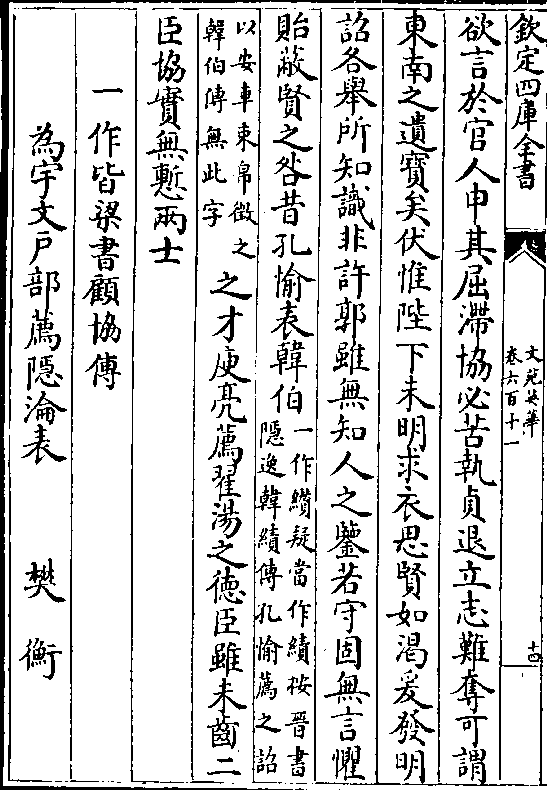 欽定四庫全書
文苑英華
卷六百十一
十四
欲言於官人申其屈滯協必苦執貞退立志難奪可謂
東南之遺寳矣伏惟陛下未明求衣思賢如渴爰發明
詔各舉所知識非許郭雖無知人之鑒若守固無言懼
貽蔽賢之咎昔孔愉表韓伯一作纉疑當作績按晉書
隱逸韓績傳孔愉薦之詔
以安車束帛徴之
韓伯傳無此字之才庾亮薦翟湯之德臣雖未齒二
臣協實無慙兩士
一作皆梁書顧協傳
為宇文户部薦隱淪表 樊衡